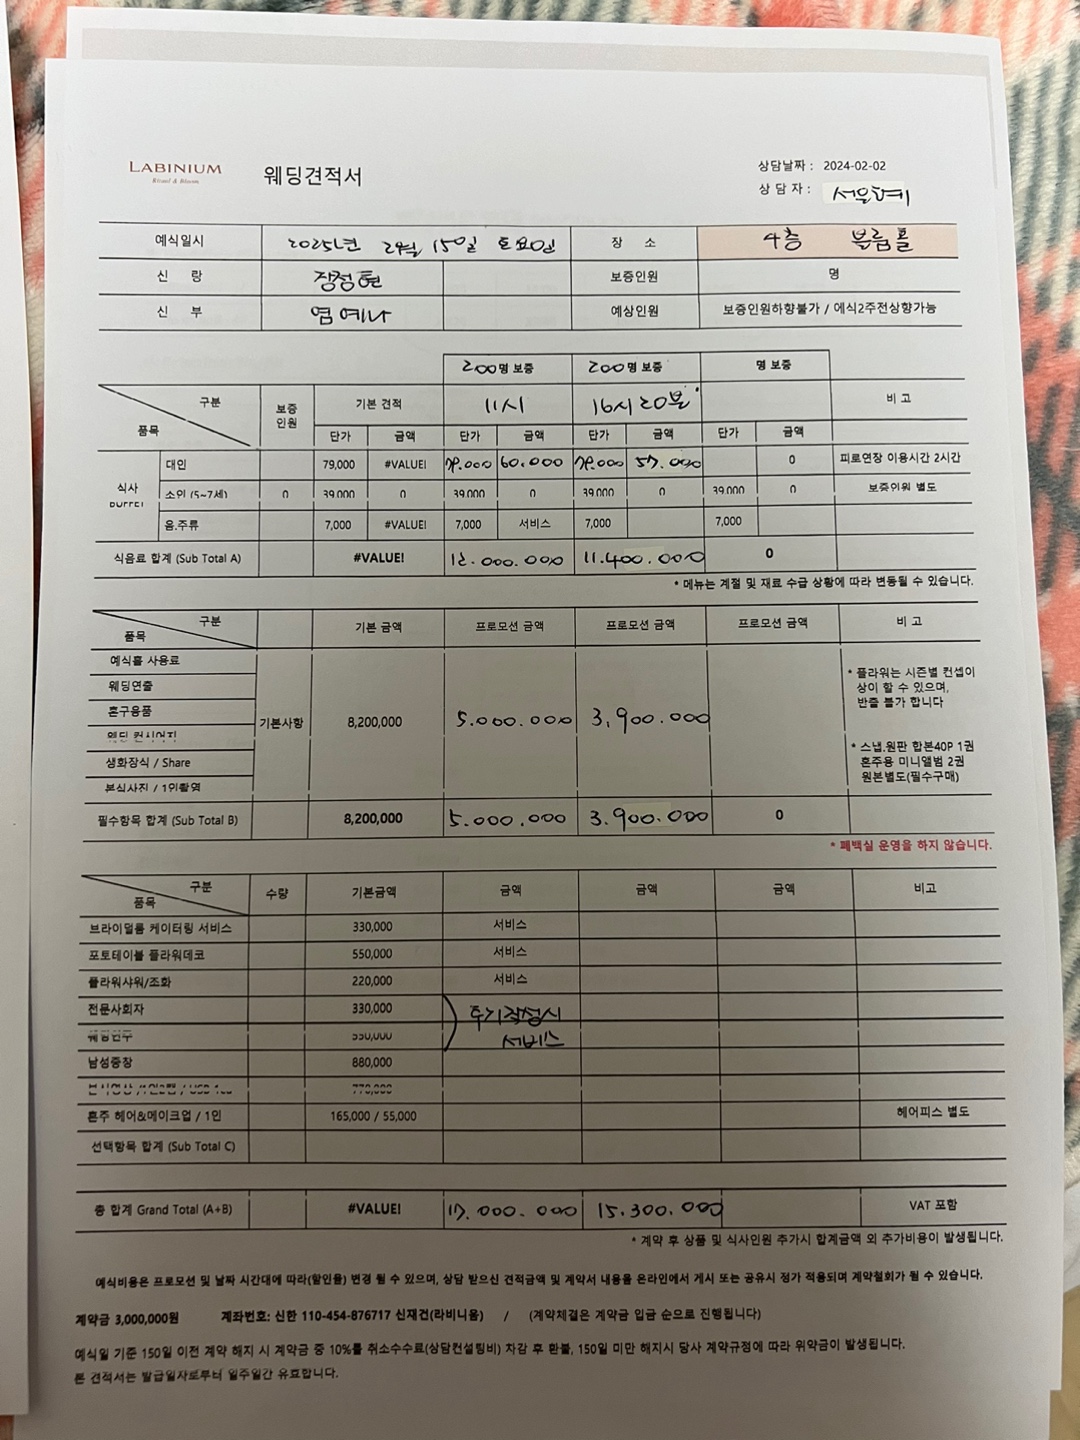 LABINIUM
웨딩견적서
상담날짜 : 2024-02-02
상 담 자 :
예식일시 2025년 2월 15일 토요일 장 소 4층 블룸홀
신 랑 장정현 보증인원 명
신 부 염예나 예상인원 보증인원하향불가 / 예식2주전상향가능
200명 보증 200명 보증 명 보증
구분 품목 보증인원 기본 견적 11시 16시 20분 비 고
단가 금액 단가 금액 단가 금액 단가 금액
식사 대인 79,000 #VALUE! 79.000 60.000 79.000 57.000 0 피로연장 이용시간 2시간
소인 (5~7세) 0 39,000 0 39,000 0 39,000 0 39,000 0 보증인원 별도
음.주류 7,000 #VALUE! 7,000 서비스 7,000 7,000
식음료 합계 (Sub Total A) #VALUE! 12.000.000 11.400.000 0
* 메뉴는 계절 및 재료 수급 상황에 따라 변동될 수 있습니다.
구분 품목 기본 금액 프로모션 금액 프로모션 금액 프로모션 금액 비 고
예식홀 사용료
웨딩연출
혼구용품
생화장식 / Share
본식사진 / 1인촬영
기본사항 8,200,000 5.000.000 3,900.000
* 플라워는 시즌별 컨셉이
상이 할 수 있으며,
반출 불가 합니다
* 스냅.원판 합본40P 1권
혼주용 미니앨범 2권
원본별도(필수구매)
필수항목 합계 (Sub Total B) 8,200,000 5.000.000 3.900.000 0
* 폐백실 운영을 하지 않습니다.
구분 품목 수량 기본금액 금액 금액 금액 비고
브라이덜룸 케이터링 서비스 330,000 서비스
포토테이블 플라워데코 550,000 서비스
플라워샤워/조화 220,000 서비스
전문사회자 330,000 후기작성시
서비스
남성중창 880,000
혼주 헤어&메이크업 / 1인 165,000 / 55,000 헤어피스 별도
선택항목 합계 (Sub Total C)
총 합계 Grand Total (A+B) #VALUE! 17.000.000 15.300.000 VAT 포함
* 계약 후 상품 및 식사인원 추가시 합계금액 외 추가비용이 발생됩니다.
예식비용은 프로모션 및 날짜 시간대에 따라(할인율) 변경 될 수 있으며, 상담 받으신 견적금액 및 계약서 내용을 온라인에서 게시 또는 공유시 정가 적용되며 계약철회가 될 수 있습니다.
계약금 3,000,000원 계좌번호: 신한 110-454-876717 신재건(라비니움) / (계약체결은 계약금 입금 순으로 진행됩니다)
예식일 기준 150일 이전 계약 해지 시 계약금 중 10%를 취소수수료(상담컨설팅비) 차감 후 환불, 150일 미만 해지시 당사 계약규정에 따라 위약금이 발생됩니다.
본 견적서는 발급일자로부터 일주일간 유효합니다.